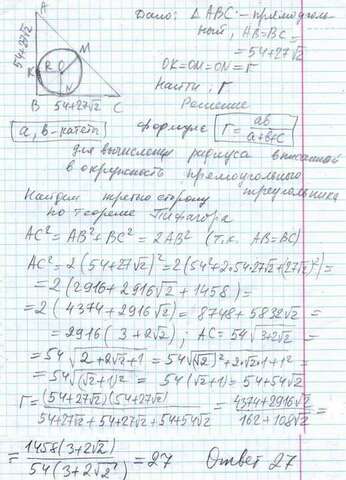 A
Дано: △ ABC - прямоуголь-
ный, AB=BC=
= 54+27√2
OK=OM=ON=r
Найти: r.
Решение
54+27√2
M
K
R
O
N
B 54+27√2 C
a, b - катеты
формула r = ab/(a+b+c)
для вычисления радиуса вписанной
в окружность прямоугольного
треугольника
Найдем третью сторону
по теореме Пифагора
AC² = AB² + BC² = 2AB² (т.к. AB=BC)
AC² = 2(54+27√2)² = 2(54²+2·54·27√2+(27√2)²) =
= 2(2916+2916√2 + 1458) =
= 2(4374+2916√2) = 8748+5832√2 =
= 2916(3+2√2); AC = 54√(3+2√2) =
= 54√(2+2√2+1) = 54√((√2)²+2·√2·1+1²) =
= 54√((√2+1)²) = 54(√2+1) = 54+54√2
r = (54+27√2)(54+27√2)/(54+27√2+54+27√2+54+54√2) = (4374+2916√2)/(162+108√2) =
= 1458(3+2√2)/(54(3+2√2)) = 27 Ответ 27